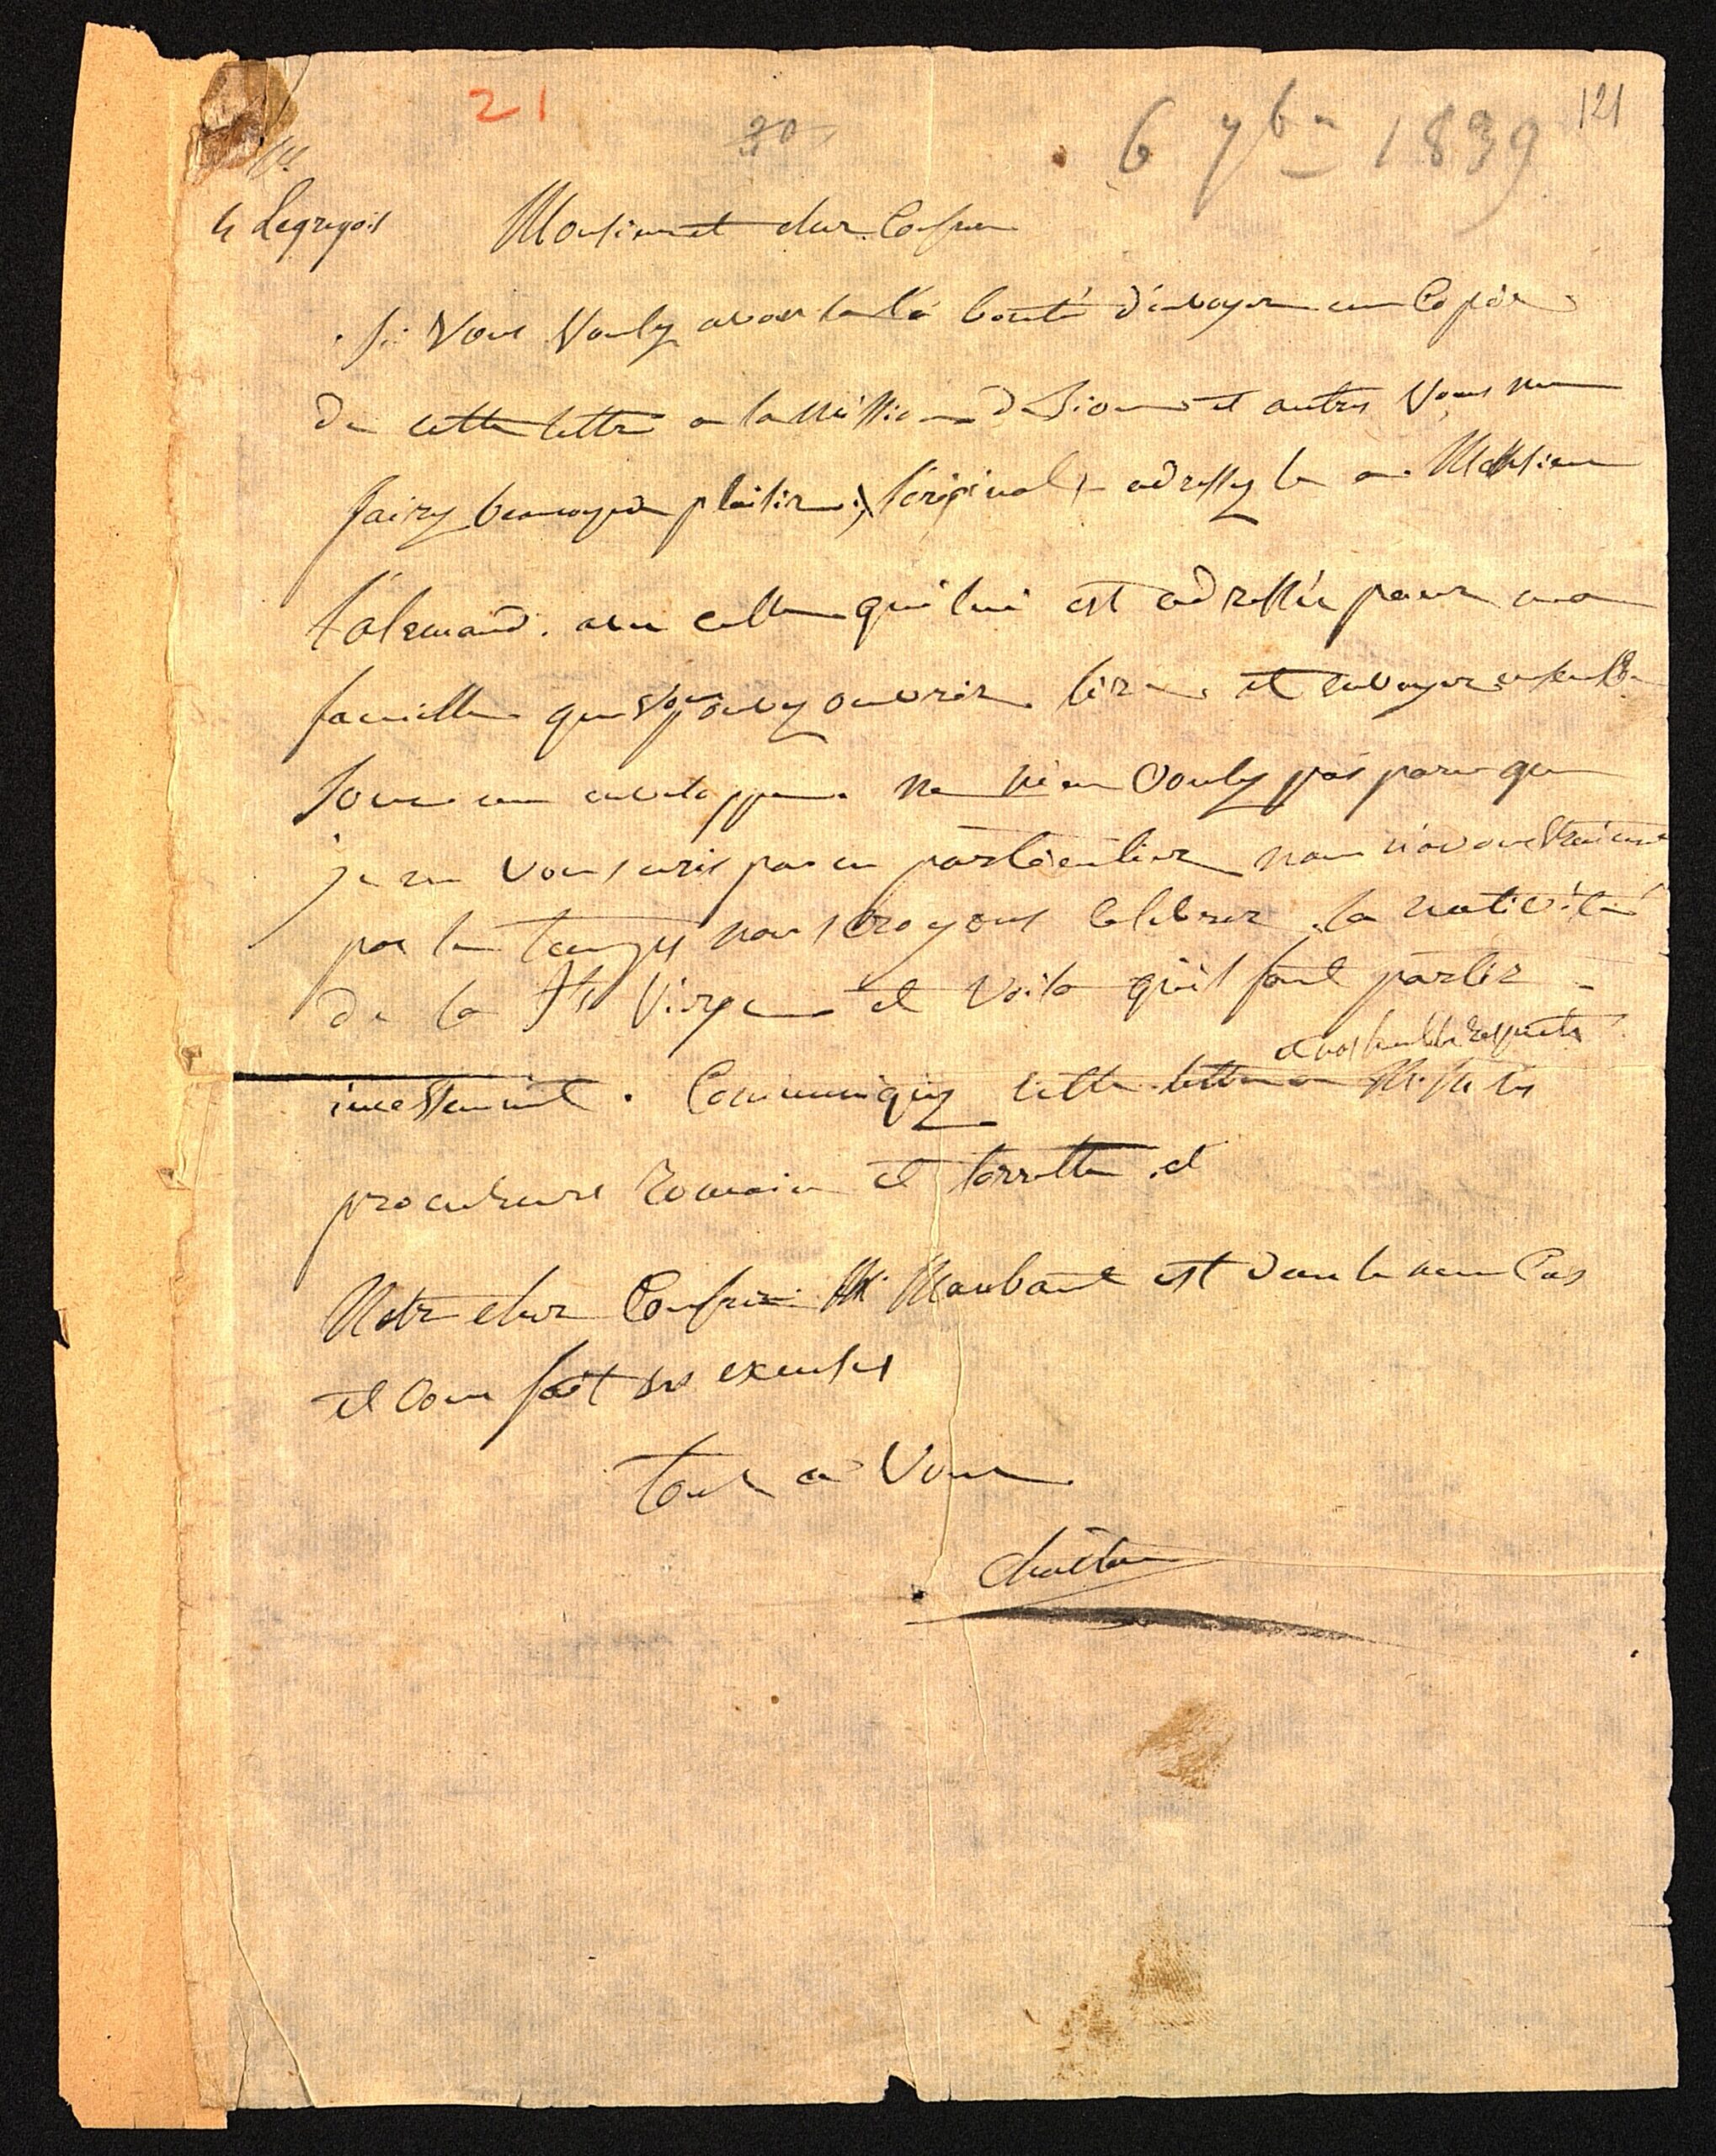 21
30
6 7bre 1839
121
M.
Legregois
Monsieur et cher Confrere
Si vous voulez avoir la bonté d'envoyer une Copie
de cette lettre a la Mission de Siam et autres vous me
fairez beaucoup de plaisir; l'original adressez le a Monsieur
Talemand. avec celle qui lui est adressée pour ma
famille que vous pouvez ouvrir lire et envoyer ensemble
sous une enveloppe. Ne m'en voulez pas parce que
je ne vous ecris pas en particulier nous n'avons vraiement
pas le temps nous croyons celebrer la nativité
de la Ste Vierge et voila qu'il faut partir
incessament. Communiquez cette lettre a M. M. les
et nos humbles respects
procureurs Romain et torrette et
Notre cher Confrere Mr Maubant est dans le meme Cas
il vous fait ses excuses
tout a vous
Chastan